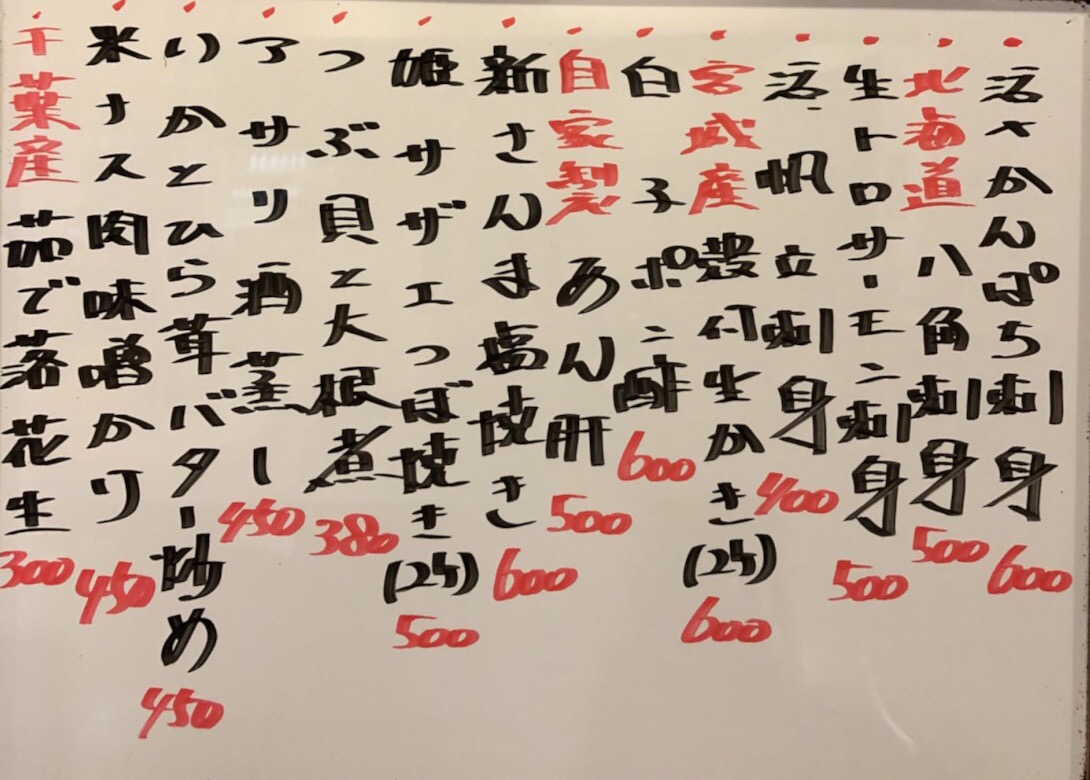 活さかんぱち刺身 600
北海道 八角刺身 500
生トロサーモン刺身 500
活帆立刺身 400
宮城産 殻付生かき(2ケ) 600
白子ポン酢 600
自家製 あん肝 500
新さんま塩焼き 600
姫サザエつぼ焼き(2ケ) 500
つぶ貝と大根煮 380
アサリ酒蒸し 450
いかとひら茸バター炒め 450
米ナス肉味噌かけ 450
千葉産 茹で落花生 300